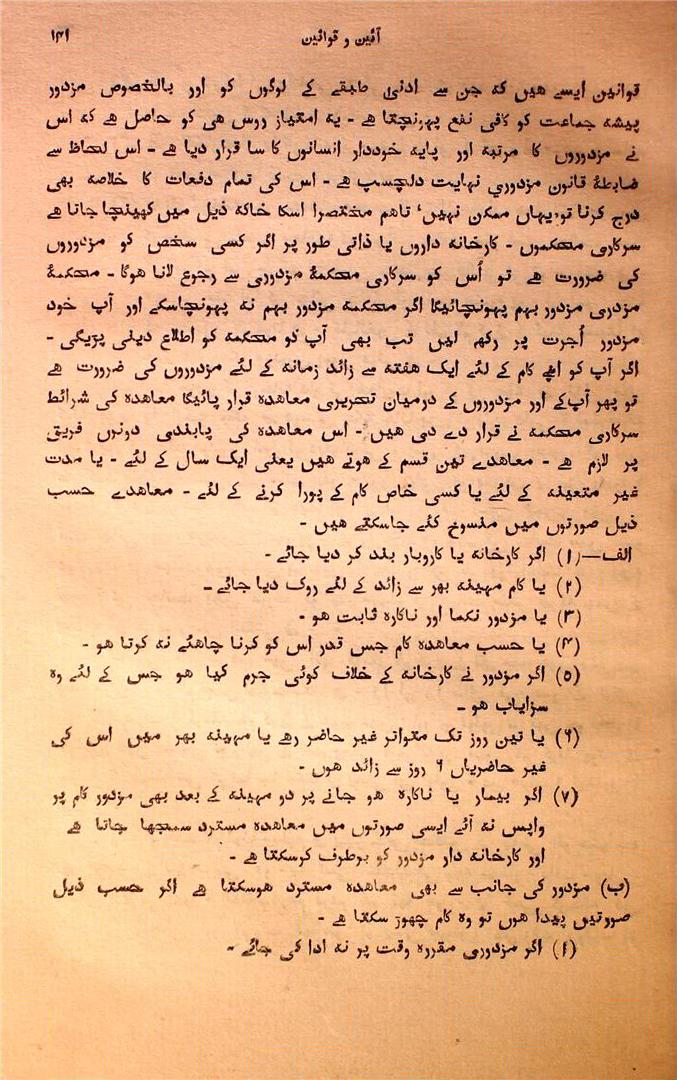 آئین و قوانین ۱۴۱
قوانین ایسے هیں که جن سے ادنیٰ طبقے کے لوگوں کو اور بالخصوص مزدور
پیشه جماعت کو کافی نفع پہونچتا هے - یه امتیاز روس هی کو حاصل هے که اس
نے مزدوروں کا مرتبه اور پایه خوددار انسانوں کا سا قرار دیا هے - اس لحاظ سے
ضابطۂ قانون مزدوري نہایت دلچسپ هے - اس کی تمام دفعات کا خلاصه بھی
درج کرنا تو یہاں ممکن نہیں، تاهم مختصرا اسکا خاکه ذیل میں کھینچا جاتا هے
سرکاری محکموں - کارخانه داروں یا ذاتی طور پر اگر کسی شخص کو مزدوروں
کی ضرورت هے تو اُس کو سرکاری محکمۂ مزدوری سے رجوع لانا هوگا - محکمۂ
مزدری مزدور بہم پہونچائیگا اگر محکمه مزدور بہم نه پہونچاسکے اور آپ خود
مزدور اُجرت پر رکھ لیں تب بھی آپ کو محکمه کو اطلاع دینی پڑیگی -
اگر آپ کو اپنے کام کے لئے ایک هفته سے زائد زمانه کے لئے مزدوروں کی ضرورت هے
تو پھر آپ کے اور مزدوروں کے درمیان تحریری معاهده قرار پائیگا معاهده کی شرائط
سرکاری محکمه نے قرار دے دی هیں - اس معاهده کی پابندی دونوں فریق
پر لازم هے - معاهدے تین قسم کے هوتے هیں یعنی ایک سال کے لئے - یا مدت
غیر متعینه کے لئے یا کسی خاص کام کے پورا کرنے کے لئے - معاهدے حسب
ذیل صورتوں میں منسوخ کئے جاسکتے هیں -
الف—(۱) اگر کارخانه یا کاروبار بند کر دیا جائے -
(۲) یا کام مہینه بھر سے زائد کے لئے روک دیا جائے -
(۳) یا مزدور نکما اور ناکاره ثابت هو -
(۴) یا حسب معاهده کام جس قدر اس کو کرنا چاهئے نه کرتا هو -
(۵) اگر مزدور نے کارخانه کے خلاف کوئی جرم کیا هو جس کے لئے وه
سزایاب هو -
(۶) یا تین روز تک متواتر غیر حاضر رهے یا مہینه بھر میں اس کی
غیر حاضریاں ۶ روز سے زائد هوں -
(۷) اگر بیمار یا ناکاره هو جانے پر دو مہینه کے بعد بھی مزدور کام پر
واپس نه آئے ایسی صورتوں میں معاهده مسترد سمجھا جاتا هے
اور کارخانه دار مزدور کو برطرف کرسکتا هے -
(ب) مزدور کی جانب سے بھی معاهده مسترد هوسکتا هے اگر حسب ذیل
صورتیں پیدا هوں تو وه کام چھوڑ سکتا هے -
(۱) اگر مزدوری مقرره وقت پر نه ادا کی جائے -